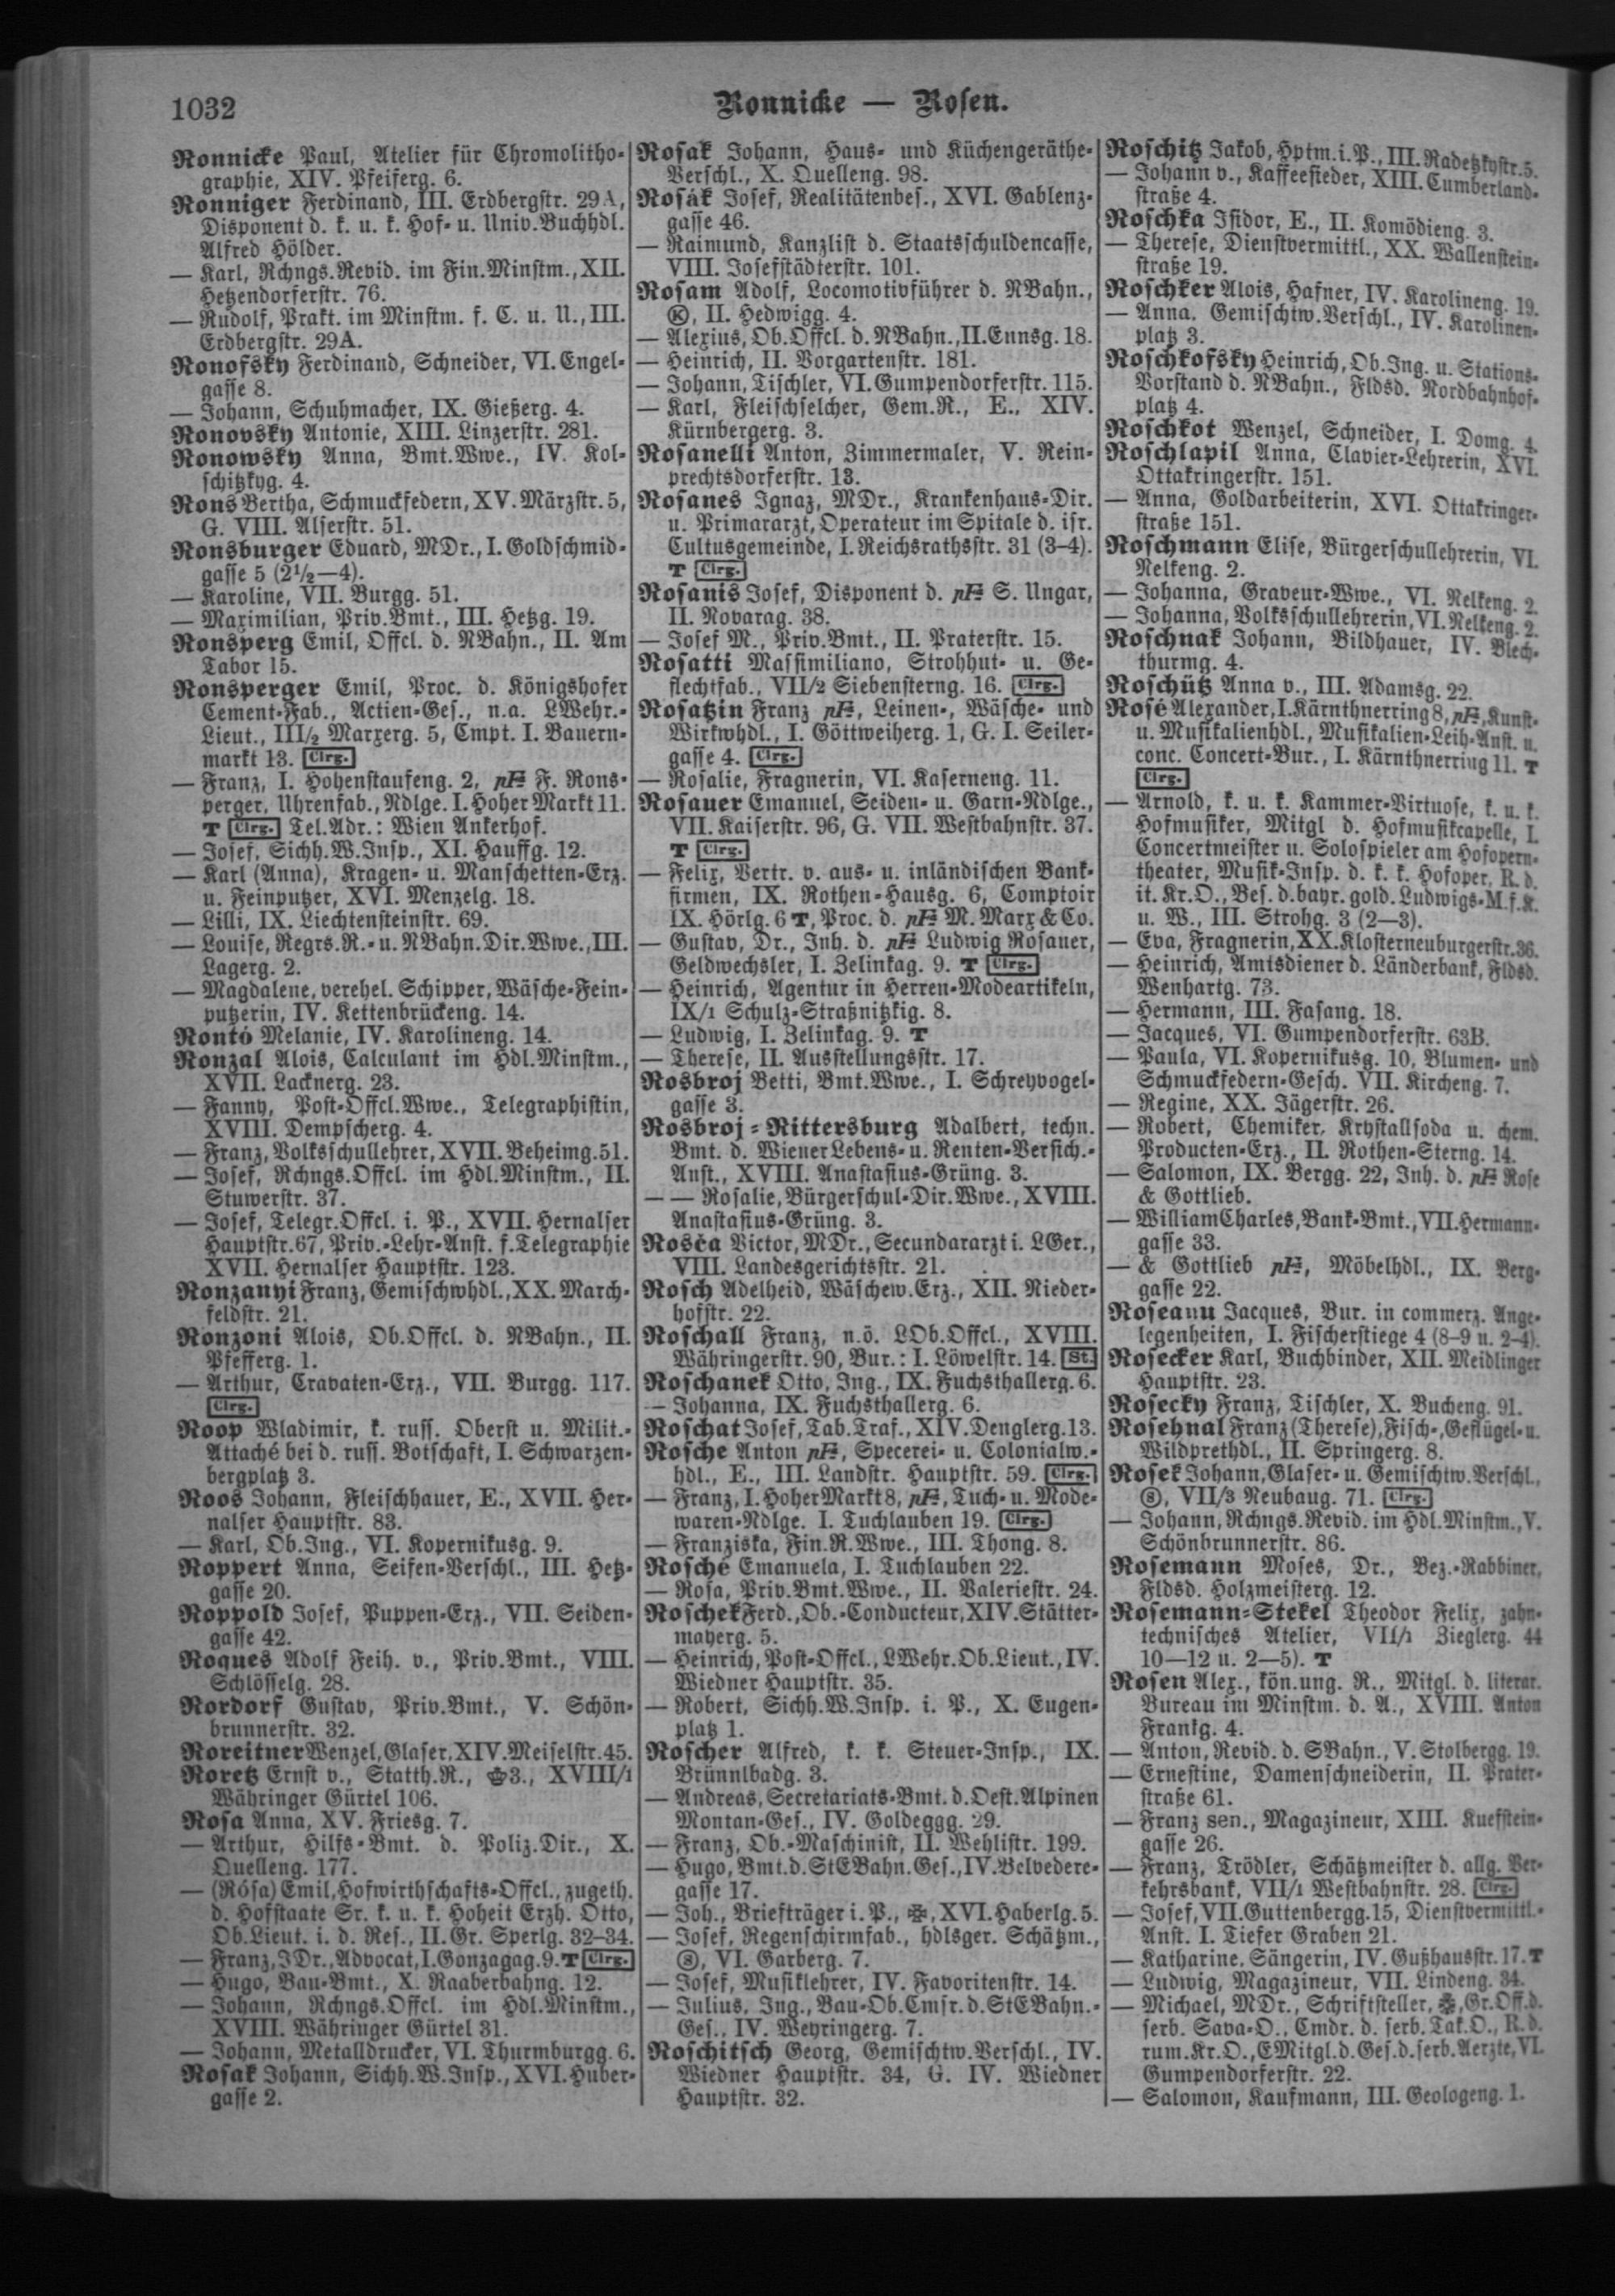 1032
Ronnicke — Rosen.
Ronnicke Paul, Atelier für Chromolitho-
graphie, XIV. Pfeiferg. 6.
Ronniger Ferdinand, III. Erdbergstr. 29A,
Disponent d. k. u. k. Hof- u. Univ.Buchhdl.
Alfred Hölder.
— Karl, Rchngs.Revid. im Fin.Minstm., XII.
Hetzendorferstr. 76.
— Rudolf, Prakt. im Minstm. f. C. u. U., III.
Erdbergstr. 29A.
Ronofsky Ferdinand, Schneider, VI. Engel-
gasse 8.
— Johann, Schuhmacher, IX. Gießerg. 4.
Ronovsky Antonie, XIII. Linzerstr. 281.
Ronowsky Anna, Bmt.Wwe., IV. Kol-
schitzkyg. 4.
Rons Bertha, Schmuckfedern, XV. Märzstr. 5,
G. VIII. Alserstr. 51.
Ronsburger Eduard, MDr., I. Goldschmid-
gasse 5 (2½—4).
— Karoline, VII. Burgg. 51.
— Maximilian, Priv.Bmt., III. Hetzg. 19.
Ronsperg Emil, Offcl. d. NBahn., II. Am
Tabor 15.
Ronsperger Emil, Proc. d. Königshofer
Cement-Fab., Actien-Ges., n.a. LWehr.-
Lieut., III/2 Marxerg. 5, Cmpt. I. Bauern-
markt 13. Clrg.
— Franz, I. Hohenstaufeng. 2, pF F. Rons-
perger, Uhrenfab., Ndlge. I. Hoher Markt 11.
T Clrg. Tel.Adr.: Wien Ankerhof.
— Josef, Sichh.W.Insp., XI. Hauffg. 12.
— Karl (Anna), Kragen- u. Manschetten-Erz.
u. Feinputzer, XVI. Menzelg. 18.
— Lilli, IX. Liechtensteinstr. 69.
— Louise, Regrs.R.- u. NBahn.Dir.Wwe., III.
Lagerg. 2.
— Magdalene, verehel. Schipper, Wäsche-Fein-
putzerin, IV. Kettenbrückeng. 14.
Rontó Melanie, IV. Karolineng. 14.
Ronzal Alois, Calculant im Hdl.Minstm.,
XVII. Lacknerg. 23.
— Fanny, Post-Offcl.Wwe., Telegraphistin,
XVIII. Dempscherg. 4.
— Franz, Volksschullehrer, XVII. Beheimg. 51.
— Josef, Rchngs.Offcl. im Hdl.Minstm., II.
Stuwerstr. 37.
— Josef, Telegr.Offcl. i. P., XVII. Hernalser
Hauptstr. 67, Priv.-Lehr-Anst. f. Telegraphie
XVII. Hernalser Hauptstr. 123.
Ronzanyi Franz, Gemischwhdl., XX. March-
feldstr. 21.
Ronzoni Alois, Ob.Offcl. d. NBahn., II.
Pfefferg. 1.
— Arthur, Cravaten-Erz., VII. Burgg. 117.
Clrg.
Roop Wladimir, k. russ. Oberst u. Milit.-
Attaché bei d. russ. Botschaft, I. Schwarzen-
bergplatz 3.
Roos Johann, Fleischhauer, E., XVII. Her-
nalser Hauptstr. 83.
— Karl, Ob.Ing., VI. Kopernikusg. 9.
Roppert Anna, Seifen-Verschl., III. Hetz-
gasse 20.
Roppold Josef, Puppen-Erz., VII. Seiden-
gasse 42.
Roques Adolf Feih. v., Priv.Bmt., VIII.
Schlösselg. 28.
Rordorf Gustav, Priv.Bmt., V. Schön-
brunnerstr. 32.
Roreitner Wenzel, Glaser, XIV. Meiselstr. 45.
Roretz Ernst v., Statth.R., 3., XVIII/1
Währinger Gürtel 106.
Rosa Anna, XV. Friesg. 7.
— Arthur, Hilfs-Bmt. d. Poliz.Dir., X.
Quelleng. 177.
— (Rósa) Emil, Hofwirthschafts-Offcl., zugeth.
d. Hofstaate Sr. k. u. k. Hoheit Erzh. Otto,
Ob.Lieut. i. d. Res., II. Gr. Sperlg. 32–34.
— Franz, JDr., Advocat, I. Gonzagag. 9. T Clrg.
— Hugo, Bau-Bmt., X. Raaberbahng. 12.
— Johann, Rchngs.Offcl. im Hdl.Minstm.,
XVIII. Währinger Gürtel 31.
— Johann, Metalldrucker, VI. Thurmburgg. 6.
Rosak Johann, Sichh.W.Insp., XVI. Huber-
gasse 2.
Rosak Johann, Haus- und Küchengeräthe-
Verschl., X. Quelleng. 98.
Rosák Josef, Realitätenbes., XVI. Gablenz-
gasse 46.
— Raimund, Kanzlist d. Staatsschuldencasse,
VIII. Josefstädterstr. 101.
Rosam Adolf, Locomotivführer d. NBahn.,
Ⓚ, II. Hedwigg. 4.
— Alexius, Ob.Offcl. d. NBahn., II. Ennsg. 18.
— Heinrich, II. Vorgartenstr. 181.
— Johann, Tischler, VI. Gumpendorferstr. 115.
— Karl, Fleischselcher, Gem.R., E., XIV.
Kürnbergerg. 3.
Rosanelli Anton, Zimmermaler, V. Rein-
prechtsdorferstr. 13.
Rosanes Ignaz, MDr., Krankenhaus-Dir.
u. Primararzt, Operateur im Spitale d. isr.
Cultusgemeinde, I. Reichsrathsstr. 31 (3–4).
T Clrg.
Rosanis Josef, Disponent d. pF S. Ungar,
II. Novarag. 38.
— Josef M., Priv.Bmt., II. Praterstr. 15.
Rosatti Massimiliano, Strohhut- u. Ge-
flechtfab., VII/2 Siebensterng. 16. Clrg.
Rosatzin Franz pF, Leinen-, Wäsche- und
Wirkwhdl., I. Göttweiherg. 1, G. I. Seiler-
gasse 4. Clrg.
— Rosalie, Fragnerin, VI. Kaserneng. 11.
Rosauer Emanuel, Seiden- u. Garn-Ndlge.,
VII. Kaiserstr. 96, G. VII. Westbahnstr. 37.
T Clrg.
— Felix, Vertr. v. aus- u. inländischen Bank-
firmen, IX. Rothen-Hausg. 6, Comptoir
IX. Hörlg. 6 T, Proc. d. pF M. Marx & Co.
— Gustav, Dr., Inh. d. pF Ludwig Rosauer,
Geldwechsler, I. Zelinkag. 9. T Clrg.
— Heinrich, Agentur in Herren-Modeartikeln,
IX/1 Schulz-Straßnitzkig. 8.
— Ludwig, I. Zelinkag. 9. T
— Therese, II. Ausstellungsstr. 17.
Rosbroj Betti, Bmt.Wwe., I. Schreyvogel-
gasse 3.
Rosbroj-Rittersburg Adalbert, techn.
Bmt. d. Wiener Lebens- u. Renten-Versich.-
Anst., XVIII. Anastasius-Grüng. 3.
— — Rosalie, Bürgerschul-Dir.Wwe., XVIII.
Anastasius-Grüng. 3.
Rosča Victor, MDr., Secundararzt i. LGer.,
VIII. Landesgerichtsstr. 21.
Rosch Adelheid, Wäschew.Erz., XII. Nieder-
hofstr. 22.
Roschall Franz, n.ö. LOb.Offcl., XVIII.
Währingerstr. 90, Bur.: I. Löwelstr. 14. St.
Roschanek Otto, Ing., IX. Fuchsthallerg. 6.
— Johanna, IX. Fuchsthallerg. 6.
Roschat Josef, Tab.Traf., XIV. Denglerg. 13.
Rosche Anton pF, Specerei- u. Colonialw.-
hdl., E., III. Landstr. Hauptstr. 59. Clrg.
— Franz, I. Hoher Markt 8, pF, Tuch- u. Mode-
waren-Ndlge. I. Tuchlauben 19. Clrg.
— Franziska, Fin.R.Wwe., III. Thong. 8.
Rosché Emanuela, I. Tuchlauben 22.
— Rosa, Priv.Bmt.Wwe., II. Valeriestr. 24.
Roschek Ferd., Ob.-Conducteur, XIV. Stätter-
mayerg. 5.
— Heinrich, Post-Offcl., LWehr.Ob.Lieut., IV.
Wiedner Hauptstr. 35.
— Robert, Sichh.W.Insp. i. P., X. Eugen-
platz 1.
Roscher Alfred, k. k. Steuer-Insp., IX.
Brünnlbadg. 3.
— Andreas, Secretariats-Bmt. d. Oest. Alpinen
Montan-Ges., IV. Goldeggg. 29.
— Franz, Ob.-Maschinist, II. Wehlistr. 199.
— Hugo, Bmt. d. StEBahn.Ges., IV. Belvedere-
gasse 17.
— Joh., Briefträger i. P., XVI. Haberlg. 5.
— Josef, Regenschirmfab., hdlsger. Schätzm.,
Ⓢ, VI. Garberg. 7.
— Josef, Musiklehrer, IV. Favoritenstr. 14.
— Julius, Ing., Bau-Ob.Cmsr. d. StEBahn.-
Ges., IV. Weyringerg. 7.
Roschitsch Georg, Gemischtw.Verschl., IV.
Wiedner Hauptstr. 34, G. IV. Wiedner
Hauptstr. 32.
Roschitz Jakob, Hptm. i. P., III. Radetzkystr. 5.
— Johann v., Kaffeesieder, XIII. Cumberland-
straße 4.
Roschka Isidor, E., II. Komödieng. 3.
— Therese, Dienstvermittl., XX. Wallenstein-
straße 19.
Roschker Alois, Hafner, IV. Karolineng. 19.
— Anna, Gemischtw.Verschl., IV. Karolinen-
platz 3.
Roschkofsky Heinrich, Ob.Ing. u. Stations-
Vorstand d. NBahn., Fldsd. Nordbahnhof-
platz 4.
Roschkot Wenzel, Schneider, I. Domg. 4.
Roschlapil Anna, Clavier-Lehrerin, XVI.
Ottakringerstr. 151.
— Anna, Goldarbeiterin, XVI. Ottakringer-
straße 151.
Roschmann Elise, Bürgerschullehrerin, VI.
Nelkeng. 2.
— Johanna, Graveur-Wwe., VI. Nelkeng. 2.
— Johanna, Volksschullehrerin, VI. Nelkeng. 2.
Roschnak Johann, Bildhauer, IV. Blech-
thurmg. 4.
Roschütz Anna v., III. Adamsg. 22.
Rosé Alexander, I. Kärnthnerring 8, pF, Kunst-
u. Musikalienhdl., Musikalien-Leih-Anst. u.
conc. Concert-Bur., I. Kärnthnerring 11. T
Clrg.
— Arnold, k. u. k. Kammer-Virtuose, k. u. k.
Hofmusiker, Mitgl d. Hofmusikcapelle, I.
Concertmeister u. Solospieler am Hofopern-
theater, Musik-Insp. d. k. k. Hofoper, R. d.
it. Kr.O., Bes. d. bayr. gold. Ludwigs-M. f. K.
u. W., III. Strohg. 3 (2—3).
— Eva, Fragnerin, XX. Klosterneuburgerstr. 36.
— Heinrich, Amtsdiener d. Länderbank, Fldsd.
Wenhartg. 73.
— Hermann, III. Fasang. 18.
— Jacques, VI. Gumpendorferstr. 63B.
— Paula, VI. Kopernikusg. 10, Blumen- und
Schmuckfedern-Gesch. VII. Kircheng. 7.
— Regine, XX. Jägerstr. 26.
— Robert, Chemiker, Krystallsoda u. chem.
Producten-Erz., II. Rothen-Sterng. 14.
— Salomon, IX. Bergg. 22, Inh. d. pF Rose
& Gottlieb.
— William Charles, Bank-Bmt., VII. Hermann-
gasse 33.
— & Gottlieb pF, Möbelhdl., IX. Berg-
gasse 22.
Roseanu Jacques, Bur. in commerz. Ange-
legenheiten, I. Fischerstiege 4 (8–9 u. 2–4).
Rosecker Karl, Buchbinder, XII. Meidlinger
Hauptstr. 23.
Rosecky Franz, Tischler, X. Bucheng. 91.
Rosehnal Franz (Therese), Fisch-, Geflügel- u.
Wildprethdl., II. Springerg. 8.
Rosek Johann, Glaser- u. Gemischtw.Verschl.,
Ⓢ, VII/3 Neubaug. 71. Clrg.
— Johann, Rchngs.Revid. im Hdl.Minstm., V.
Schönbrunnerstr. 86.
Rosemann Moses, Dr., Bez.-Rabbiner,
Fldsd. Holzmeisterg. 12.
Rosemann-Stekel Theodor Felix, zahn-
technisches Atelier, VII/1 Zieglerg. 44
10—12 u. 2—5). T
Rosen Alex., kön.ung. R., Mitgl. d. literar.
Bureau im Minstm. d. A., XVIII. Anton
Frankg. 4.
— Anton, Revid. d. SBahn., V. Stolbergg. 19.
— Ernestine, Damenschneiderin, II. Prater-
straße 61.
— Franz sen., Magazineur, XIII. Kuefstein-
gasse 26.
— Franz, Trödler, Schätzmeister d. allg. Ver-
kehrsbank, VII/1 Westbahnstr. 28. Clrg.
— Josef, VII. Guttenbergg. 15, Dienstvermittl.-
Anst. I. Tiefer Graben 21.
— Katharine, Sängerin, IV. Gußhausstr. 17. T
— Ludwig, Magazineur, VII. Lindeng. 34.
— Michael, MDr., Schriftsteller, Gr.Off. d.
serb. Sava-O., Cmdr. d. serb. Tak.O., R. d.
rum. Kr.O., EMitgl. d. Ges. d. serb. Aerzte, VI.
Gumpendorferstr. 22.
— Salomon, Kaufmann, III. Geologeng. 1.